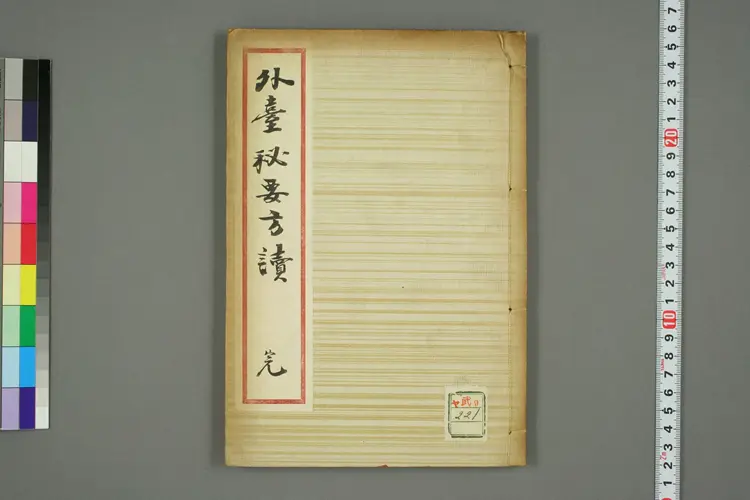 外臺秘要方讀 完
ヤ 武 9
221
7
6
5
4
3
2
1
20
9
8
7
6
5
4
3
2
1
10
9
8
7
6
5
4
3
2
1